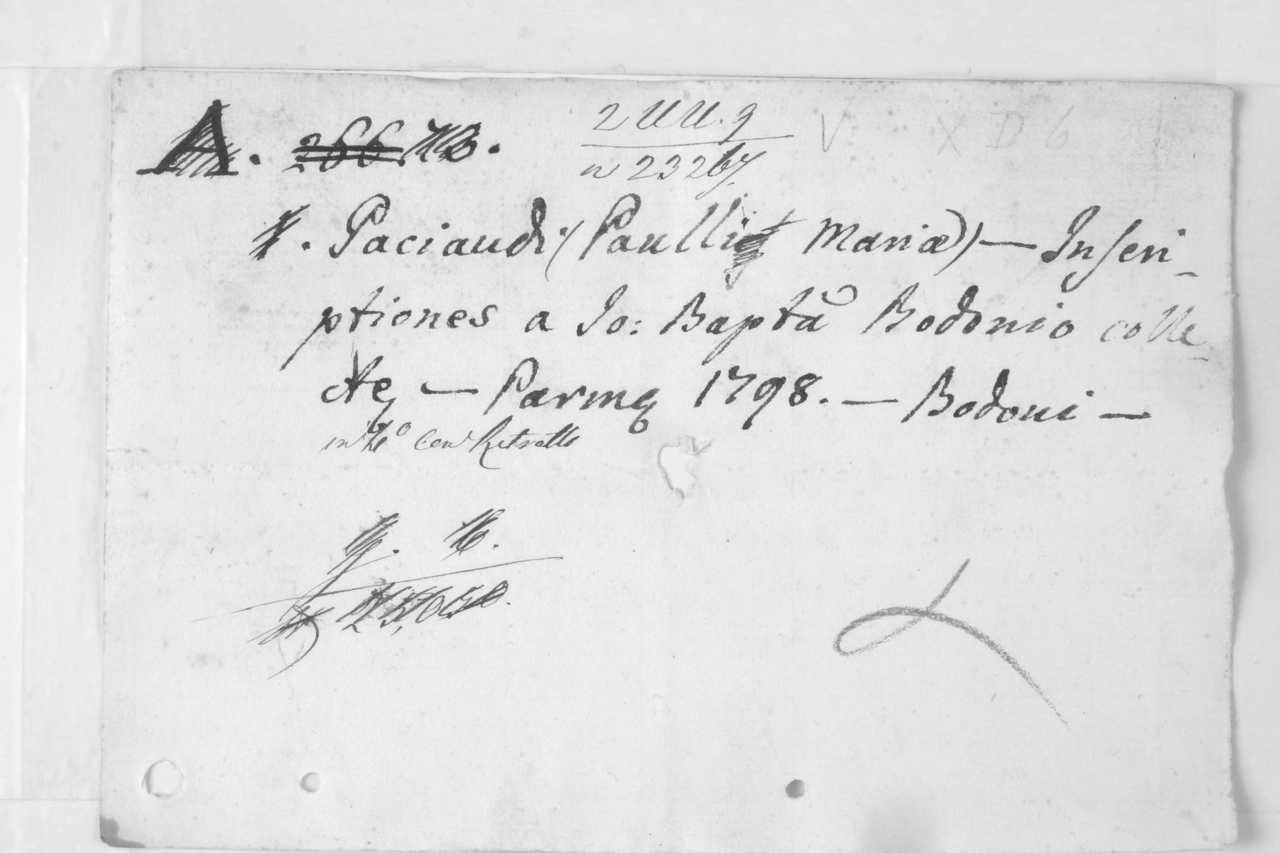 A.
2 UU. 9
n 23267.
V. X D 6
Paciaudi (Paulli Mariæ) — Inscri-
ptiones a Jo: Baptã Bodonio colle-
ctę — Parmę 1798. — Bodoni —
in 4º con Ritratto